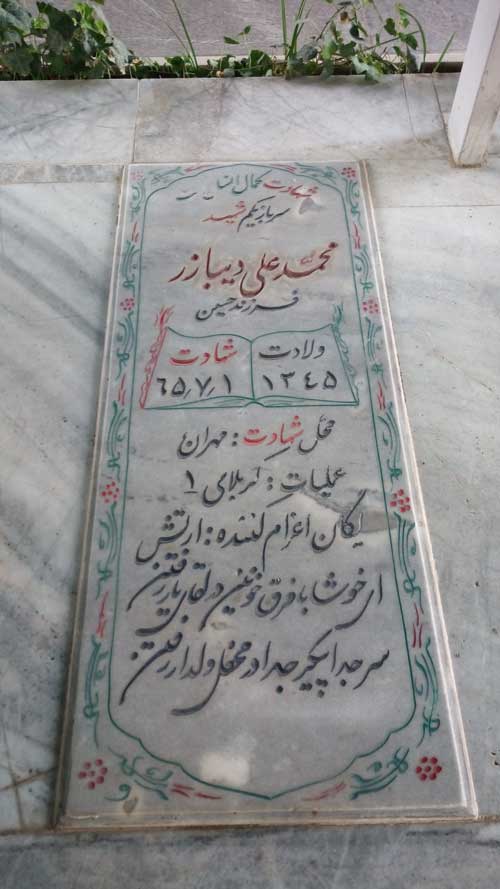 کمال
سرباز یکم شهید
محمد علی دیبازر
فرزند حسین
ولادت شهادت
۱۳۴۵ ۶۵٫۷٫۱
محل شهادت : مهران
عملیات : کربلای ۱
یگان اعزام کننده : ارتش
ای خوشا با فرق خونین در لقای یار رفتن
سر جدا پیکر جدا در محفل دلدار رفتن